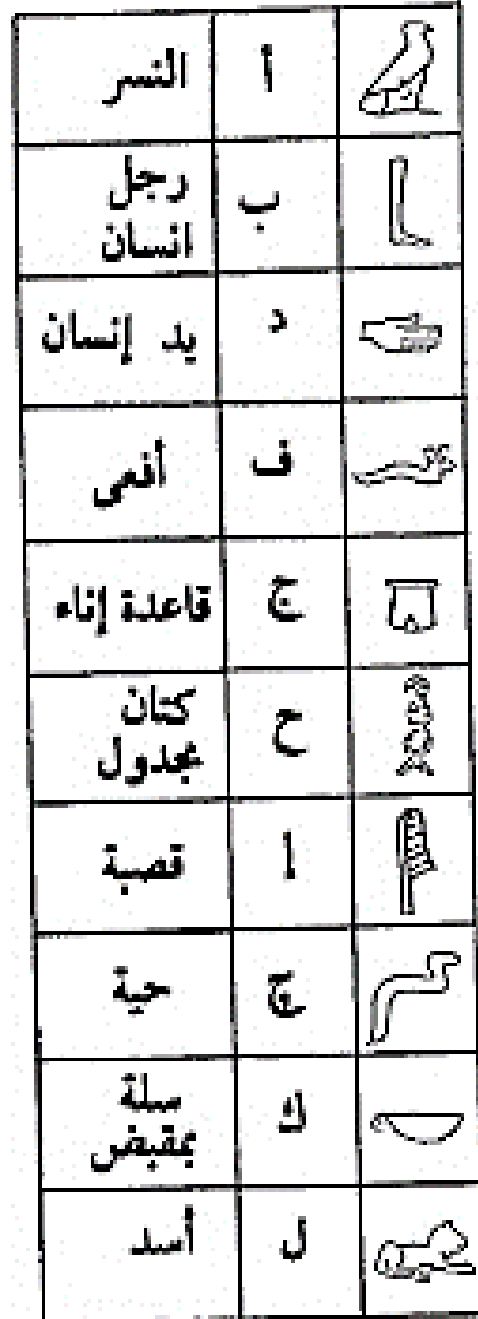 أ النسر
ب رجل
انسان
د يد إنسان
ف أفعى
ج قاعدة إناء
ح كتان
مجدول
ا قصبة
چ حية
ك سلة
بمقبض
ل أسد